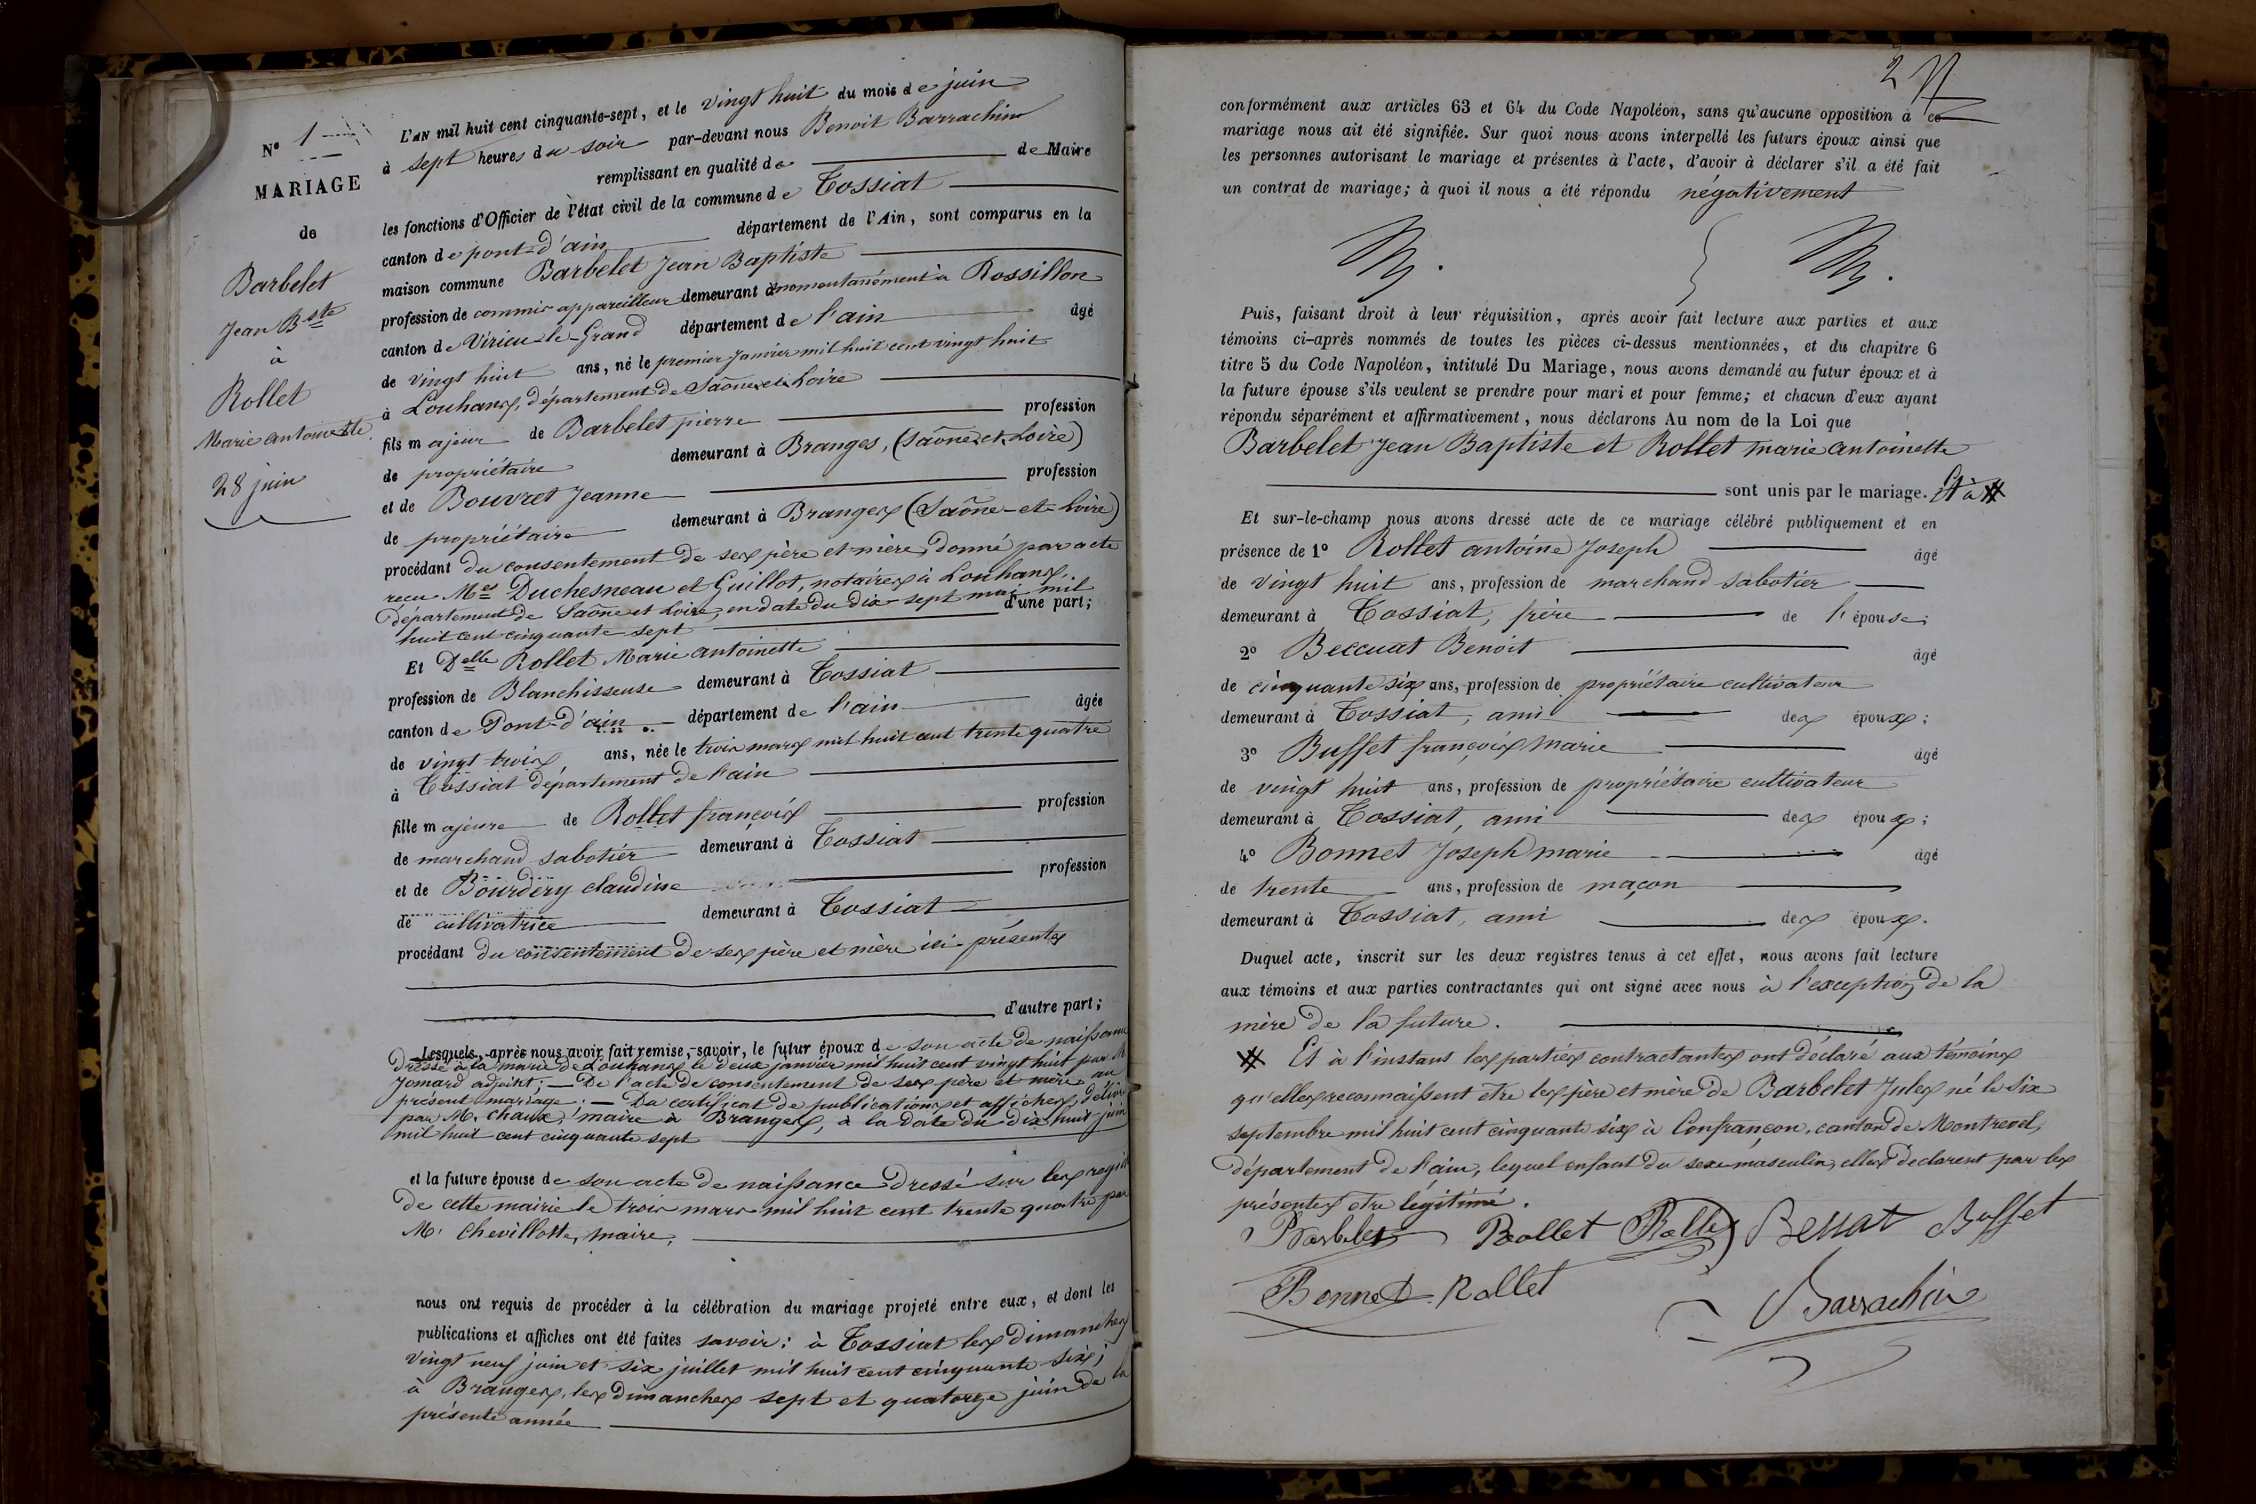 N° 1
MARIAGE
de
Barbelet
Jean Bste
à
Rollet
Marie antoinette
28 juin
L'AN mil huit cent cinquante-sept, et le vingt huit du mois de juin
à sept heures du soir par-devant nous Benoit Barrachin
remplissant en qualité de de Maire
les fonctions d'Officier de l'état civil de la commune de Tossiat
canton de pont-d'ain département de l'Ain, sont comparus en la
maison commune Barbelet Jean Baptiste
profession de commis appareilleur demeurant à momentanément à Rossillon
canton de Virieu-le-Grand département de l'ain âgé
de vingt huit ans, né le premier Janvier mil huit cent vingt huit
à Louhans, département de Saône et Loire
fils majeur de Barbelet pierre profession
de propriétaire demeurant à Branges, (Saône et Loire)
et de Bouvret Jeanne profession
de propriétaire demeurant à Branges (Saône-et-Loire)
procédant du consentement de ses père et mère, donné par acte
recu Mes Duchesneau et Guillot, notaires à Louhans,
département de Saône et Loire, en date du dix-sept mai mil
huit cent cinquante sept d'une part;
Et Delle Rollet Marie antoinette
profession de Blanchisseuse demeurant à Tossiat
canton de Pont-d'ain département de l'ain âgée
de vingt trois ans, née le trois mars mil huit cent trente quatre
à Tossiat département de l'ain
fille majeure de Rollet françois profession
de marchand sabotier demeurant à Tossiat
et de Bourdery claudine profession
de cultivatrice demeurant à Tossiat
procédant du consentement de ses père et mère ici présents
d'autre part;
Lesquels, après nous avoir fait remise, savoir, le futur époux de son acte de naissance
dressé à la mairie de Louhans le deux janvier mil huit cent vingt huit par M
Jomard adjoint; — De l'acte de consentement de ses père et mère au
présent mariage; — Du certificat de publications et affiches délivré
par M. Chaux, maire à Branges, à la date du dix huit juin
mil huit cent cinquante sept
et la future épouse de son acte de naissance dressé sur les regist
de cette mairie le trois mars mil huit cent trente quatre par
Mr Chevillotte, maire,
nous ont requis de procéder à la célébration du mariage projeté entre eux, et dont les
publications et affiches ont été faites savoir: à Tossiat les dimanches
vingt neuf juin et six juillet mil huit cent cinquante six;
à Branges, les dimanches sept et quatorze juin de la
présente année
2
conformément aux articles 63 et 64 du Code Napoléon, sans qu'aucune opposition à ce
mariage nous ait été signifiée. Sur quoi nous avons interpellé les futurs époux ainsi que
les personnes autorisant le mariage et présentes à l'acte, d'avoir à déclarer s'il a été fait
un contrat de mariage; à quoi il nous a été répondu négativement
Puis, faisant droit à leur réquisition, après avoir fait lecture aux parties et aux
témoins ci-après nommés de toutes les pièces ci-dessus mentionnées, et du chapitre 6
titre 5 du Code Napoléon, intitulé Du Mariage, nous avons demandé au futur époux et à
la future épouse s'ils veulent se prendre pour mari et pour femme; et chacun d'eux ayant
répondu séparément et affirmativement, nous déclarons Au nom de la Loi que
Barbelet Jean Baptiste et Rollet marie antoinette
sont unis par le mariage. Et à #
Et sur-le-champ nous avons dressé acte de ce mariage célébré publiquement et en
présence de 1° Rollet antoine Joseph âgé
de vingt huit ans, profession de marchand sabotier
demeurant à Tossiat, frère de l'épouse;
2° Beccuat Benoit âgé
de cinquante six ans, profession de propriétaire cultivateur
demeurant à Tossiat, ami des époux;
3° Buffet françois marie âgé
de vingt huit ans, profession de propriétaire cultivateur
demeurant à Tossiat, ami des époux;
4° Bonnet Joseph marie âgé
de trente ans, profession de maçon
demeurant à Tossiat, ami des époux.
Duquel acte, inscrit sur les deux registres tenus à cet effet, nous avons fait lecture
aux témoins et aux parties contractantes qui ont signé avec nous à l'exception de la
mère de la future.
# Et à l'instant les parties contractantes ont déclaré aux témoins
qu'elles reconnaissent etre les père et mère de Barbelet Jules né le six
septembre mil huit cent cinquante six à Confrançon, canton de Montrevel,
département de l'ain, lequel enfant du sexe masculin, elles declarent par les
présentes etre légitimé.
Barbelet Rollet Rollet Bessat Buffet
Bonnet Rollet
Barrachin